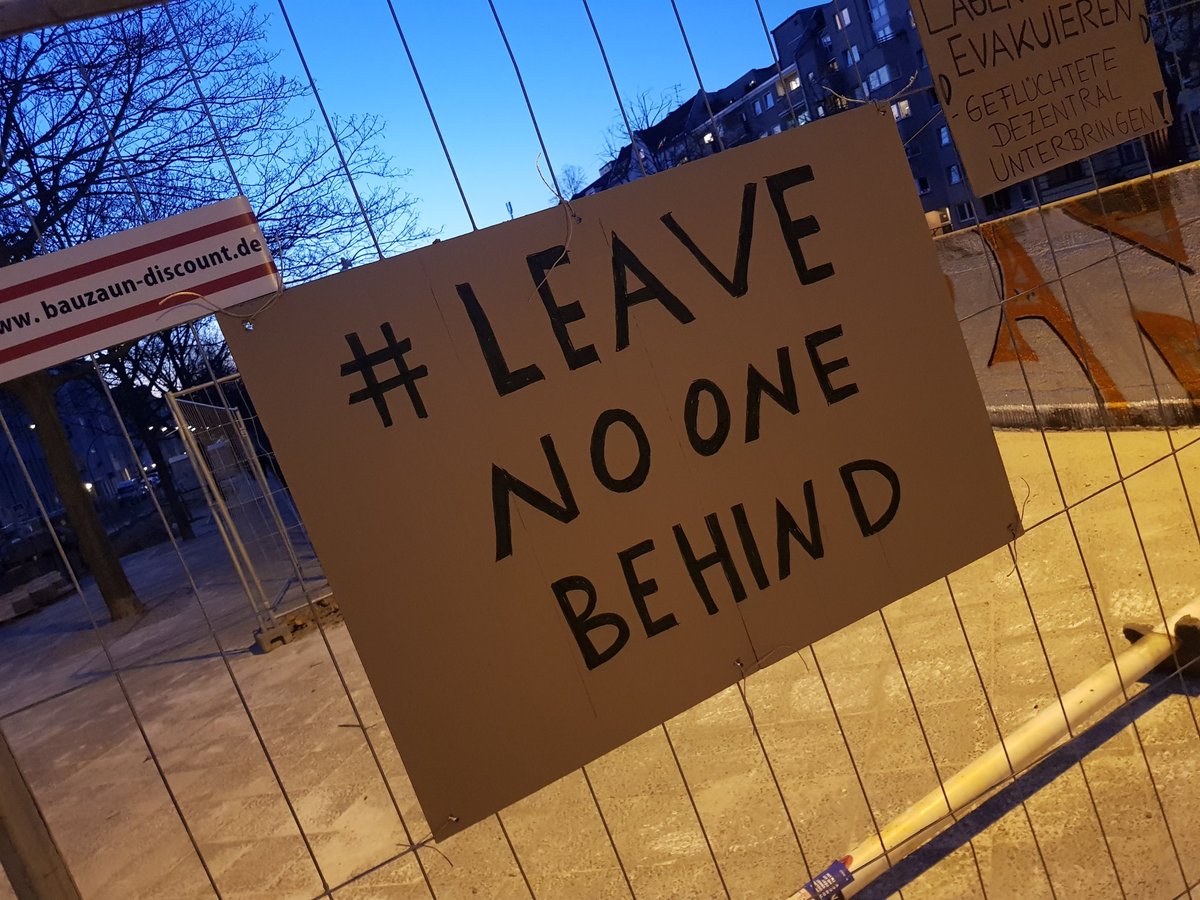 ww.bauzaun-discount.de
#LEAVE
NO ONE
BEHIND
EVAKUIEREN
- GEFLÜCHTETE
DEZENTRAL
UNTERBRINGEN!